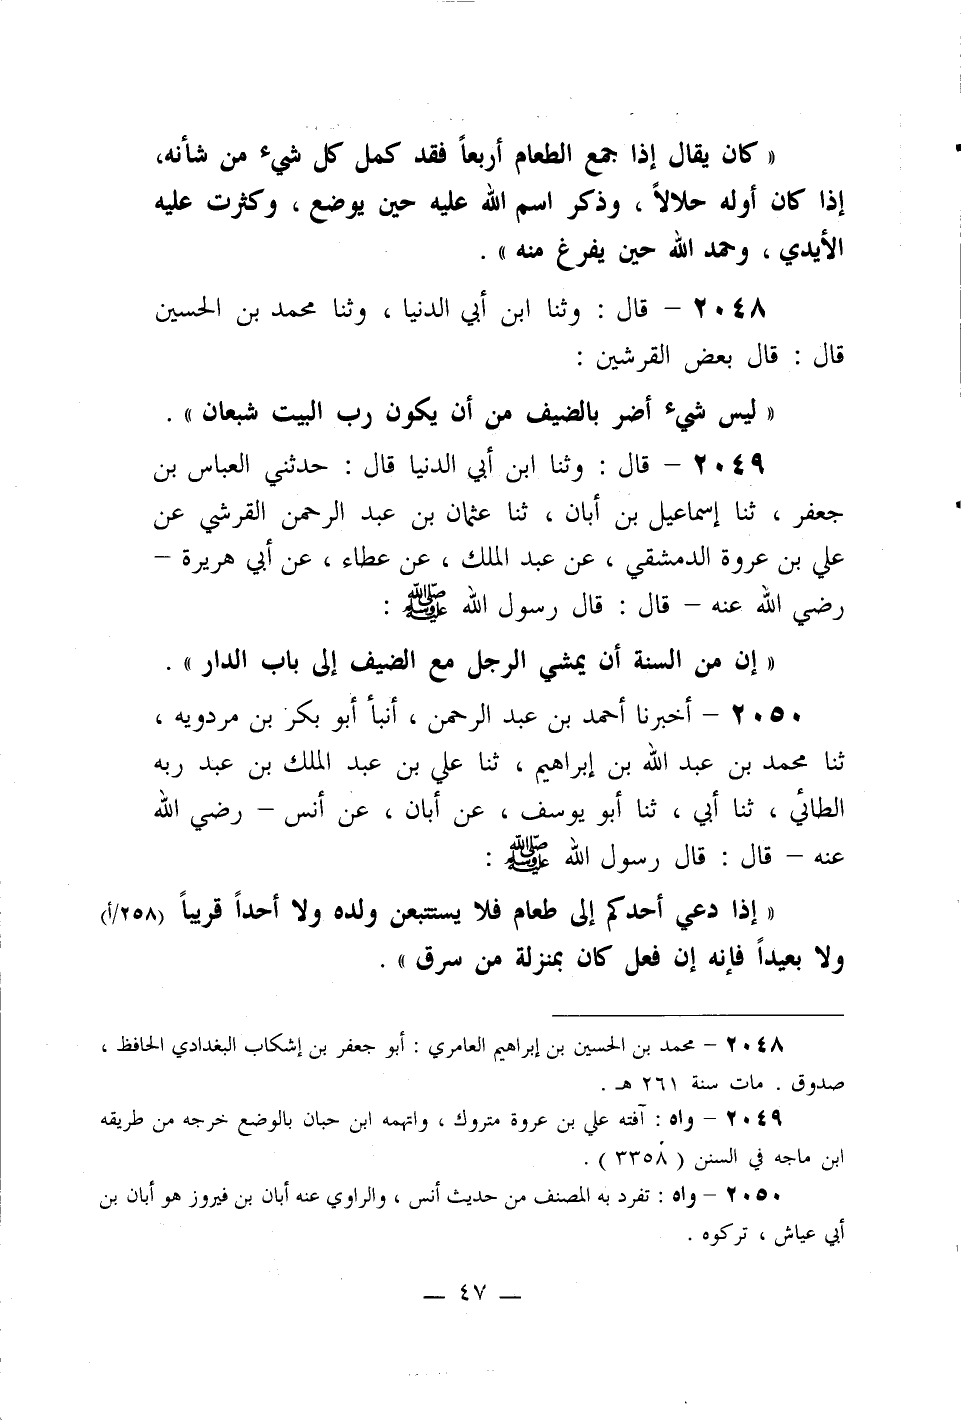 « كان يقال إذا جمع الطعام أربعاً فقد كمل كل شيء من شأنه،
إذا كان أوله حلالاً ، وذكر اسم الله عليه حين يوضع ، وكثرت عليه
الأيدي ، وحمد الله حين يفرغ منه » .
٢٠٤٨ – قال : وثنا ابن أبي الدنيا ، وثنا محمد بن الحسين
قال : قال بعض القرشين :
« ليس شيء أضر بالضيف من أن يكون رب البيت شبعان » .
٢٠٤٩ – قال : وثنا ابن أبي الدنيا قال : حدثني العباس بن
جعفر ، ثنا إسماعيل بن أبان ، ثنا عثمان بن عبد الرحمن القرشي عن
علي بن عروة الدمشقي ، عن عبد الملك ، عن عطاء ، عن أبي هريرة –
رضي الله عنه – قال : قال رسول الله ﷺ :
« إن من السنة أن يمشي الرجل مع الضيف إلى باب الدار » .
٢٠٥٠ – أخبرنا أحمد بن عبد الرحمن ، أنبأ أبو بكر بن مردويه ،
ثنا محمد بن عبد الله بن إبراهيم ، ثنا علي بن عبد الملك بن عبد ربه
الطائي ، ثنا أبي ، ثنا أبو يوسف ، عن أبان ، عن أنس – رضي الله
عنه – قال : قال رسول الله ﷺ :
« إذا دعي أحدكم إلى طعام فلا يستتبعن ولده ولا أحداً قريباً (٢٥٨/أ)
ولا بعيداً فإنه إن فعل كان بمنزلة من سرق » .
٢٠٤٨ – محمد بن الحسين بن إبراهيم العامري : أبو جعفر بن إشكاب البغدادي الحافظ ،
صدوق . مات سنة ٢٦١ هـ .
٢٠٤٩ – واه : آفته علي بن عروة متروك ، واتهمه ابن حبان بالوضع خرجه من طريقه
ابن ماجه في السنن ( ٣٣٥٨ ) .
٢٠٥٠ – واه : تفرد به المصنف من حديث أنس ، والراوي عنه أبان بن فيروز هو أبان بن
أبي عياش ، تركوه .
— ٤٧ —